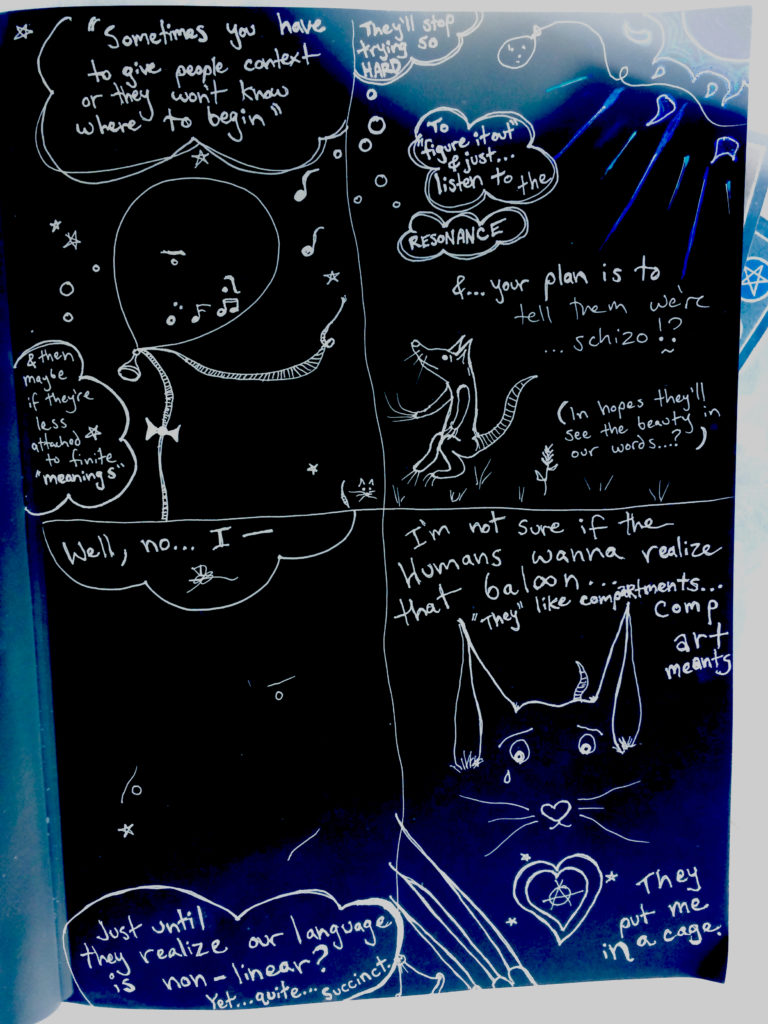 "Sometimes you have
to give people context
or they won't know
where to begin"
& then
maybe
if they're
less
attached
to finite
"meanings"
They'll stop
trying so
HARD
To
"figure it out"
& just...
listen to the
RESONANCE
&... your plan is to
tell them we're
... schizo!?
(In hopes they'll
see the beauty in
our words...?)
Well, no... I —
Just until
they realize our language
is non-linear?
Yet... quite... succinct.
I'm not sure if the
Humans wanna realize
that baloon...
"They" like compartments...
comp
art
meants
They
put me
in a cage.